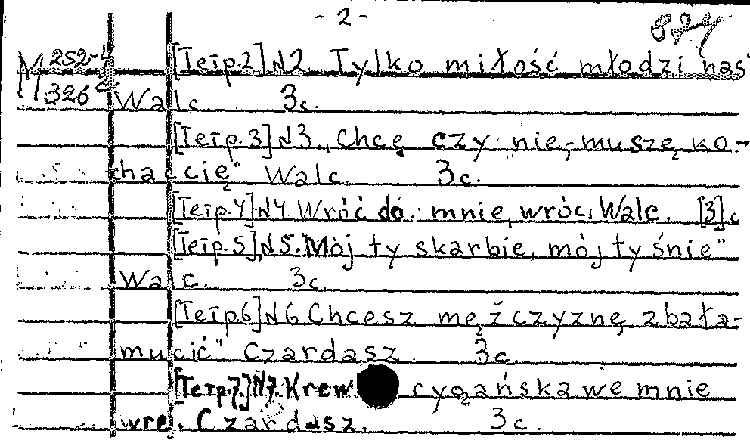 - 2 -
874
M 252-
[Teip.2] N2. Tylko miłość młodzi nas"
326 Walc 3c.
[Teip.3] N3. „Chcę czy nie, - muszę ko-
hać cię" Walc. 3c.
[Teip.4] N4 Wróć do mnie, wróć, Walc. [3]c
[Teip.5] N5. Mój ty skarbie, mój ty śnie"
Walc. 3c.
[Teip.6] N6 Chcesz mężczyznę zbała-
mucić" Czardasz 3c
[Teip.7.] N7. Krew cygańska we mnie
wre. Czardasz. 3c.